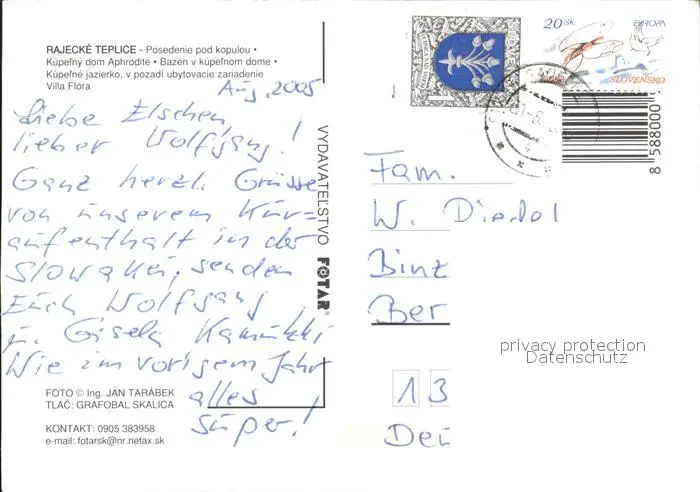 RAJECKÉ TEPLICE - Posedenie pod kopulou •
Kúpeľný dom Aphrodite • Bazén v kúpeľnom dome •
Kúpeľné jazierko, v pozadí ubytovacie zariadenie
Villa Flóra
Aug. 2005
Liebe Elschen,
lieber Wolfgang!
Ganz herzl. Grüsse
von unserem Kur=
aufenthalt in der
Slowakei, senden
Euch Wolfgang
u. Gisela
Wie im vorigem Jahr
alles
super!
FOTO © Ing. JÁN TARÁBEK
TLAČ: GRAFOBAL SKALICA
KONTAKT: 0905 383958
e-mail: fotarsk@nr.netax.sk
VYDAVATEĽSTVO FOTAR®
SLOVENSKO
20 Sk
EUROPA
SLOVENSKO
8 588000
Fam.
W. Diedel
Binz
Ber
13
Deu
privacy protection
Datenschutz